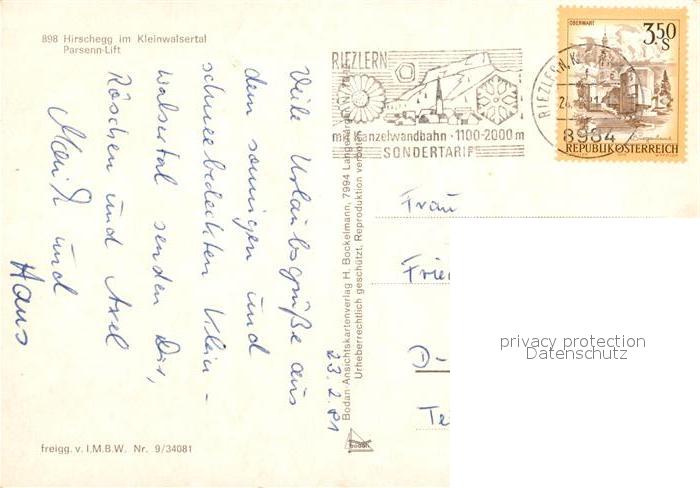 898 Hirschegg im Kleinwalsertal
Parsenn-Lift
Viele Urlaubsgrüße aus
dem sonnigen und
schneebedeckten Klein-
walsertal senden Dir,
Röschen und Axel
und
Haus
23.2.81
Bodan-Ansichtskartenverlag H. Bockelmann, 7994 Langenargen
Urheberrechtlich geschützt. Reproduktion verboten.
bodan
freigg. v. I.M.B.W. Nr. 9/34081
RIEZLERN
Kanzelwandbahn · 1100-2000 m
SONDERTARIF
RIEZLERN, K
8984
OBERWART
3.50
S
REPUBLIK ÖSTERREICH
Frau
D-
privacy protection
Datenschutz